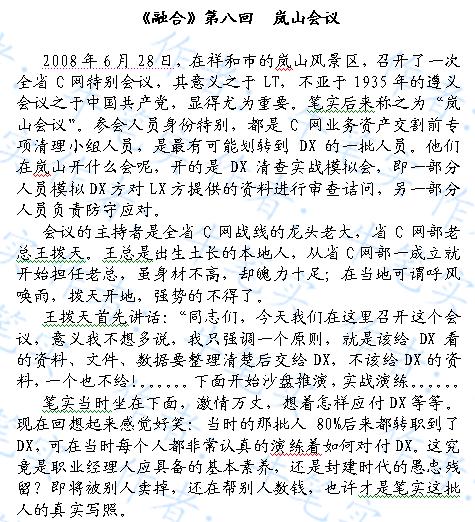 《融合》第八回 岚山会议
2008年6月28日，在祥和市的岚山风景区，召开了一次
全省C网特别会议，其意义之于LT，不亚于1935年的遵义
会议之于中国共产党，显得尤为重要。笔实后来称之为“岚
山会议”。参会人员身份特别，都是C网业务资产交割前专
项清理小组人员，是最有可能划转到DX的一批人员。他们
在岚山开什么会呢，开的是DX清查实战模拟会，即一部分
人员模拟DX方对LX方提供的资料进行审查诘问，另一部分
人员负责防守应对。
会议的主持者是全省C网战线的龙头老大，省C网部老
总王拨天。王总是出生土长的本地人，从省C网部一成立就
开始担任老总，虽身材不高，却魄力十足；在当地可谓呼风
唤雨，拨天开地，强势的不得了。
王拨天首先讲话：“同志们，今天我们在这里召开这个会
议，意义我不想多说，我只强调一个原则，就是该给DX看
的资料、文件、数据要整理清楚后交给DX，不该给DX的资
料，一个也不给!......下面开始沙盘推演，实战演练......
笔实当时坐在下面，激情万丈，想着怎样应付DX等等。
现在回想起来感觉好笑：当时的那批人80%后来都转职到了
DX，可在当时每个人都非常认真的演练着如何对付DX。这究
竟是职业经理人应具备的基本素养，还是封建时代的愚忠残
留？即将被别人卖掉，还在帮别人数钱，也许才是笔实这批
人的真实写照。